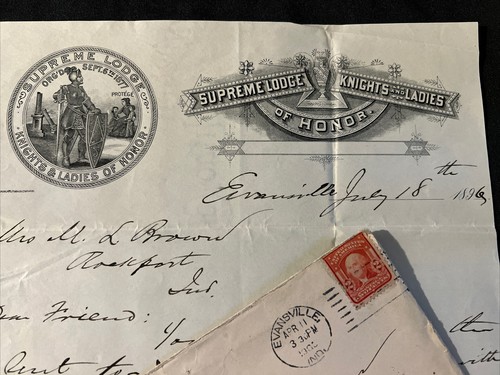 SUPREME LODGE
ORG'D SEPT. 6TH 1877
PROTÉGÉ
KNIGHTS & LADIES OF HONOR.
SUPREME LODGE KNIGHTS AND LADIES
OF HONOR.
Evansville July 18th 1896
Mrs M. L Brown
Rockport
Ind.
Dear Friend:
the
EVANSVILLE,
APR 11
3 30 PM
IND.